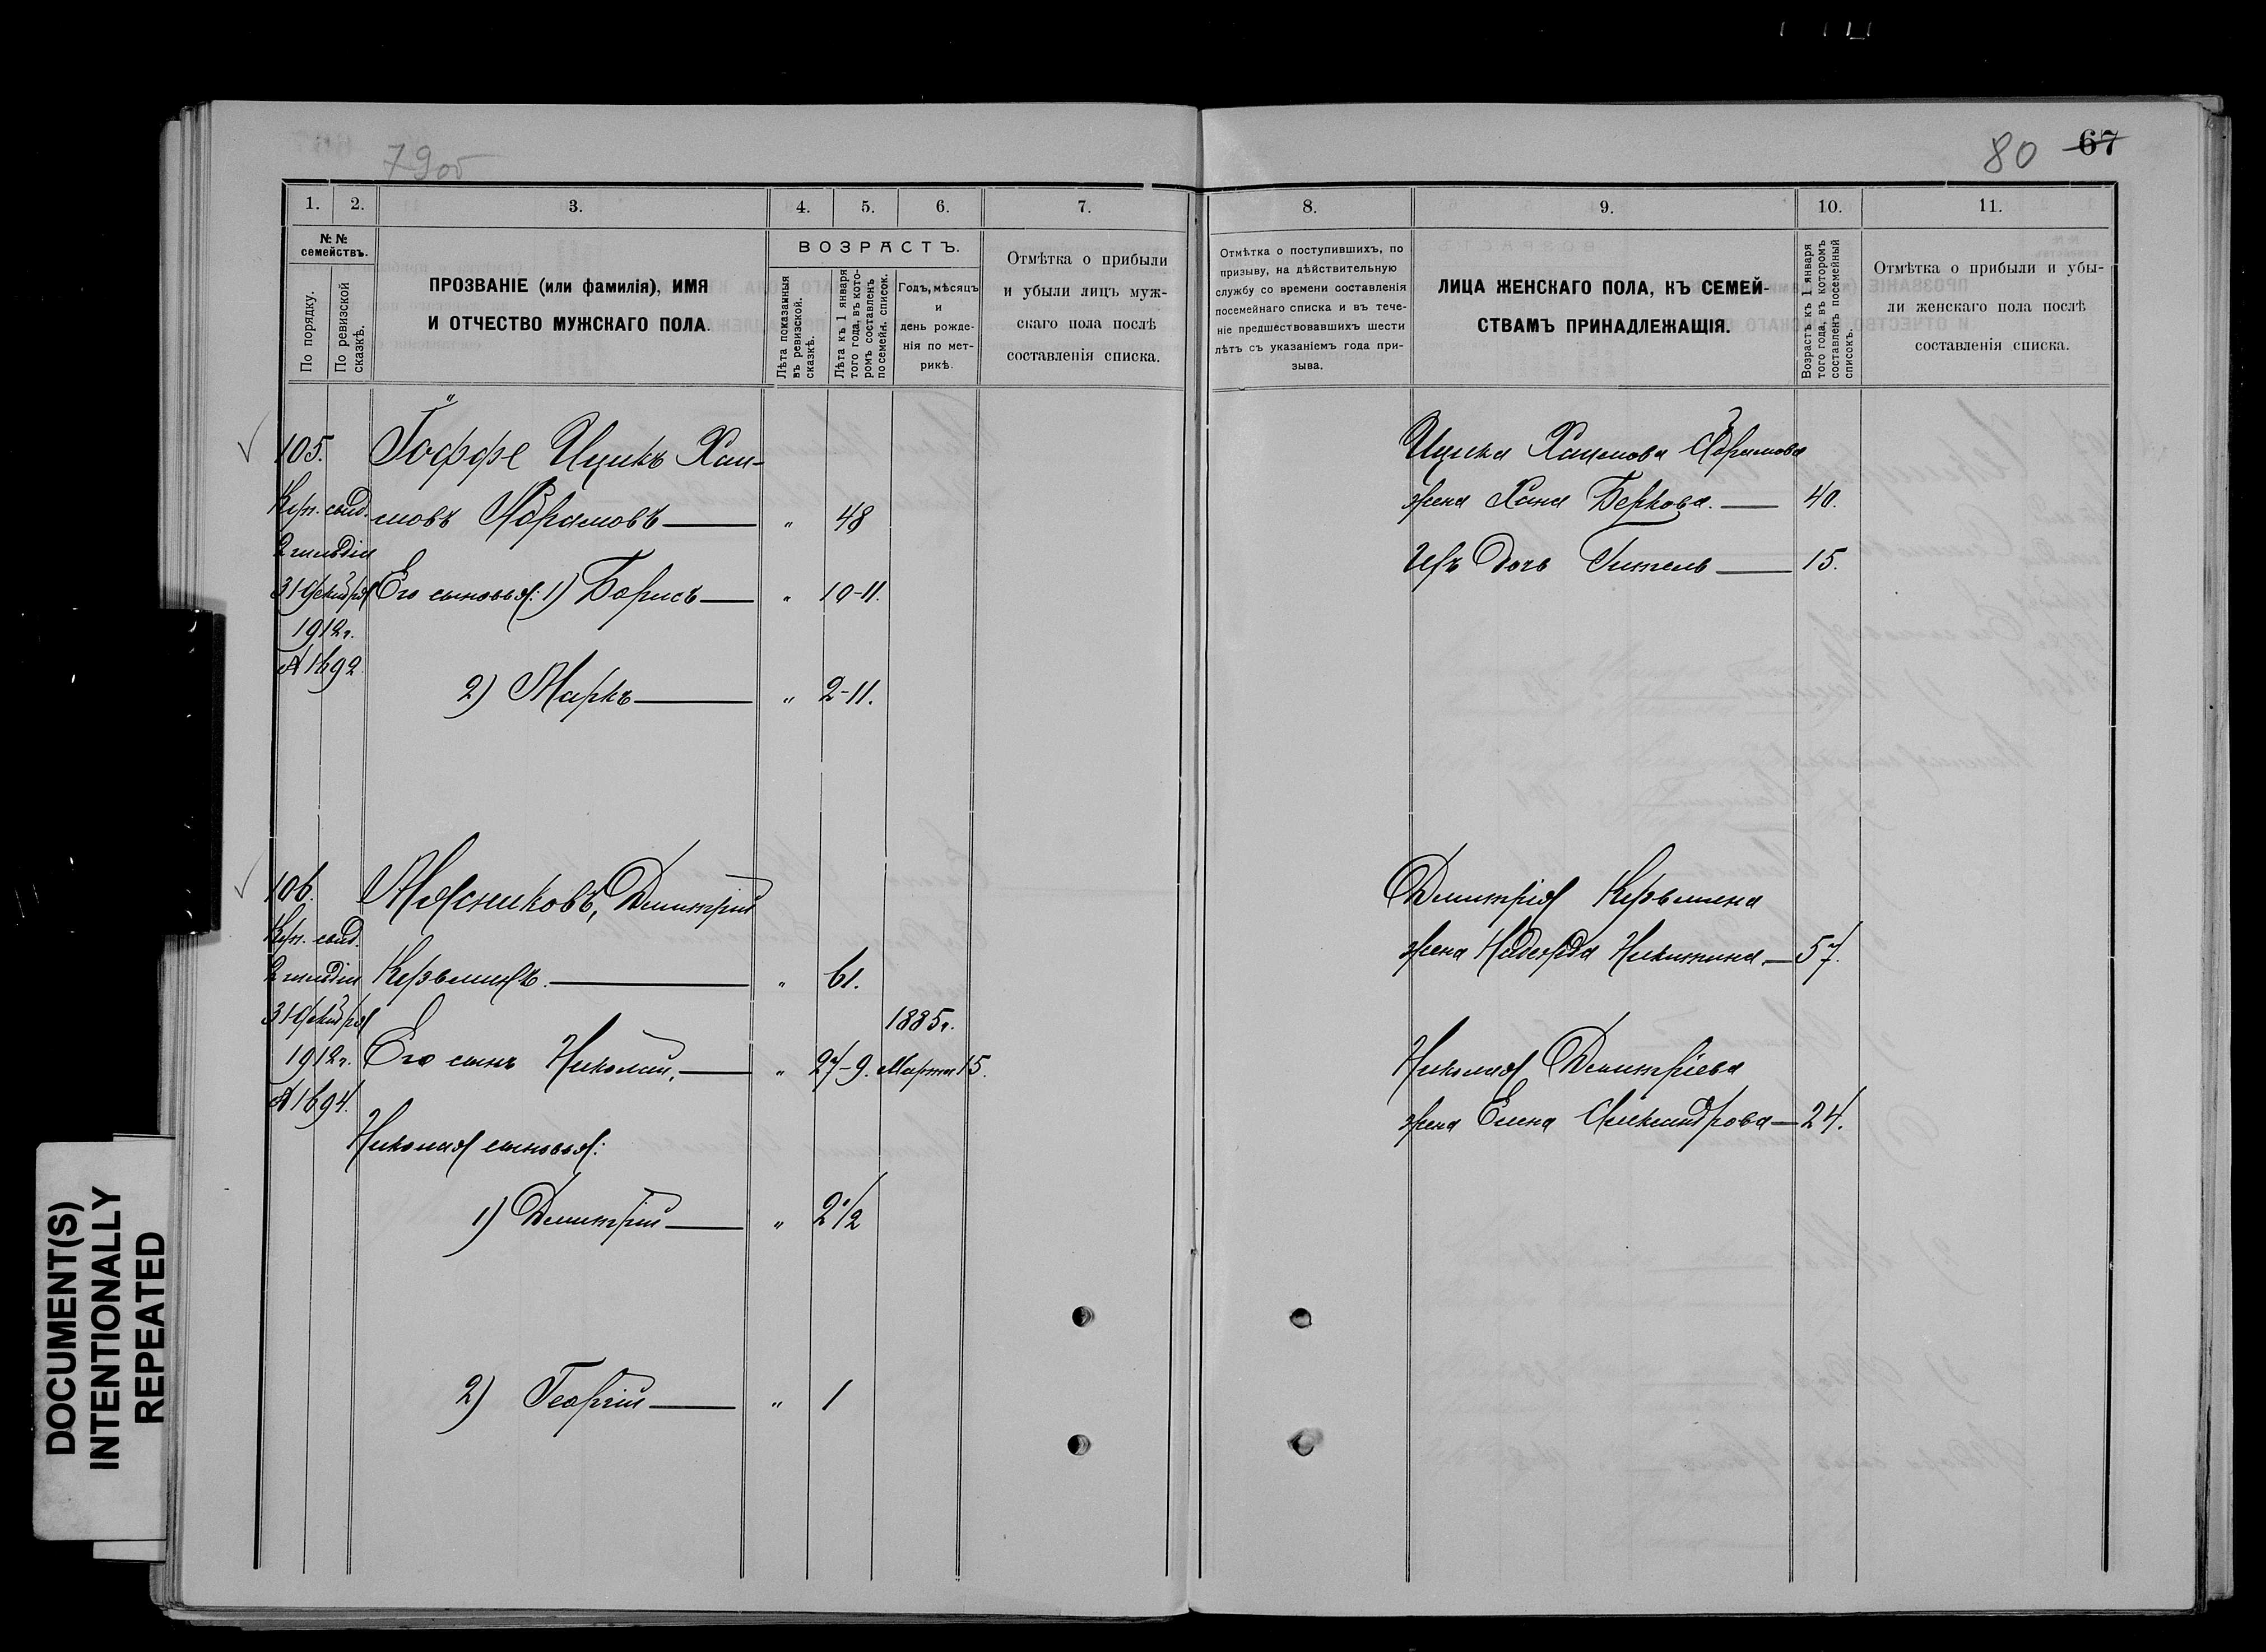 79об
80 67
1. 2. 3. 4. 5. 6. 7.
№ №
семействъ.
По порядку.
По ревизской
сказкѣ.
ПРОЗВАНІЕ (или фамилія), ИМЯ
И ОТЧЕСТВО МУЖСКАГО ПОЛА.
ВОЗРАСТЪ.
Лѣта показанныя
въ ревизской.
сказкѣ.
Лѣта къ 1 января
того года, въ кото-
ромъ составленъ
посемейн. список.
Годъ, мѣсяцъ
и
день рожде-
нія по мет-
рикѣ.
Отмѣтка о прибыли
и убыли лицъ муж-
скаго пола послѣ
составленія списка.
105. Іоффе Ицикъ Хаи-
Куп. свид. мовъ Абрамовъ — " 48
2 гильдіи
31 Декабря Его сыновья: 1) Борисъ — " 10-11.
1912 г.
№ 1692.
2) Маркъ — " 2-11.
106. Мясниковъ, Димитрій
Куп. свид.
2 гильдіи Кузьминъ. — " 61.
31 Декабря 1885 г.
1912 г. Его сынъ Николай, — " 27-9. Марта 15.
№ 1694.
Николая сыновья:
1) Димитрій — " 2 1/2
2) Георгій — " 1
8. 9. 10. 11.
Отмѣтка о поступившихъ, по
призыву, на дѣйствительную
службу со времени составленія
посемейнаго списка и въ тече-
ніе предшествовавшихъ шести
лѣтъ съ указаніемъ года при-
зыва.
ЛИЦА ЖЕНСКАГО ПОЛА, КЪ СЕМЕЙ-
СТВАМЪ ПРИНАДЛЕЖАЩІЯ.
Возрастъ къ 1 января
того года, въ которомъ
составленъ посемейный
списокъ.
Отмѣтка о прибыли и убы-
ли женскаго пола послѣ
составленія списка.
Ицика Хаимова Абрамова
жена Хана Беркова. — 40.
Ихъ дочь Гитель — 15.
Димитрія Кузьмина
жена Надежда Никитина. — 57.
Николая Димитріева
жена Елена Александрова — 24.
DOCUMENT(S)
INTENTIONALLY
REPEATED